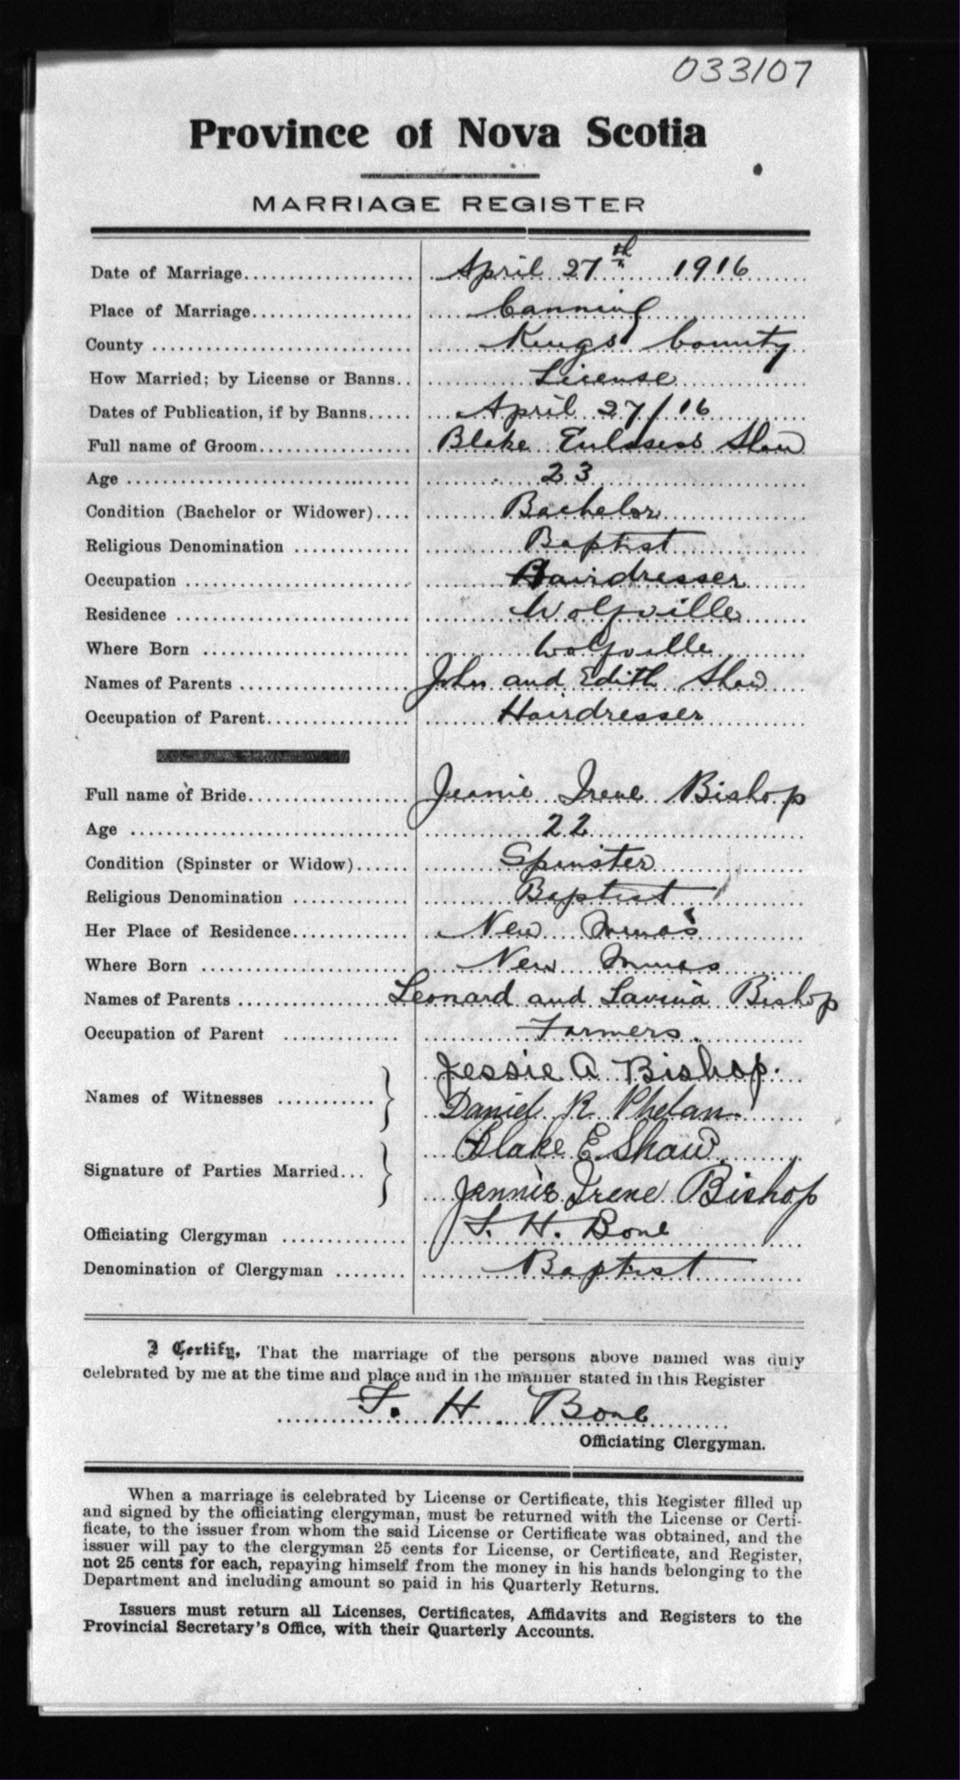 033107
Province of Nova Scotia
MARRIAGE REGISTER
Date of Marriage April 27th 1916
Place of Marriage Canning
County Kings County
How Married; by License or Banns License
Dates of Publication, if by Banns April 27/16
Full name of Groom Blake Shaw
Age 23
Condition (Bachelor or Widower) Bachelor
Religious Denomination Baptist
Occupation Hairdresser
Residence Wolfville
Where Born Wolfville
Names of Parents John and Edith Shaw
Occupation of Parent Hairdresser
Full name of Bride Jennie Irene Bishop
Age 22
Condition (Spinster or Widow) Spinster
Religious Denomination Baptist
Her Place of Residence New Minas
Where Born New Minas
Names of Parents Leonard and Lavinia Bishop
Occupation of Parent Farmers.
Names of Witnesses Jessie A Bishop.
Daniel R Phelan.
Signature of Parties Married Blake E. Shaw.
Jennie Irene Bishop
Officiating Clergyman F. H. Bone
Denomination of Clergyman Baptist
I Certify, That the marriage of the persons above named was duly
celebrated by me at the time and place and in the manner stated in this Register
F. H. Bone
Officiating Clergyman.
When a marriage is celebrated by License or Certificate, this Register filled up
and signed by the officiating clergyman, must be returned with the License or Certi-
ficate, to the issuer from whom the said License or Certificate was obtained, and the
issuer will pay to the clergyman 25 cents for License, or Certificate, and Register,
not 25 cents for each, repaying himself from the money in his hands belonging to the
Department and including amount so paid in his Quarterly Returns.
Issuers must return all Licenses, Certificates, Affidavits and Registers to the
Provincial Secretary's Office, with their Quarterly Accounts.